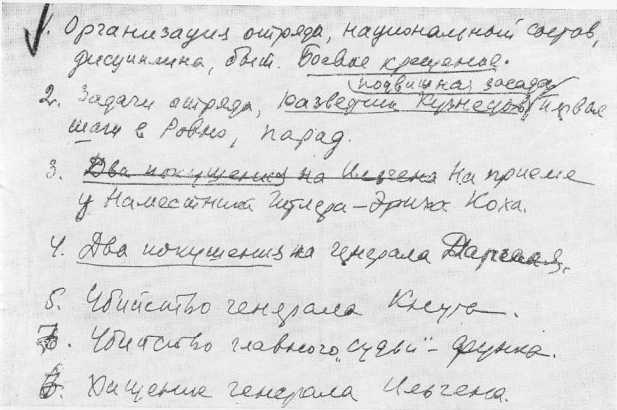 1. Организация отряда, национальный состав,
дисциплина, быт. Боевое крещение.
подвижная засада
2. Задачи отряда, разведчик Кузнецов, первые
шаги в Ровно, парад.
3. Два покушения на Ильгена На приеме
у наместника Гитлера – Эриха Коха.
4. Два покушения на генерала Даргеля.
5. Убийство генерала Кнута.
7. Убийство главного „судьи" – Функа.
6. Хищение генерала Ильгена.